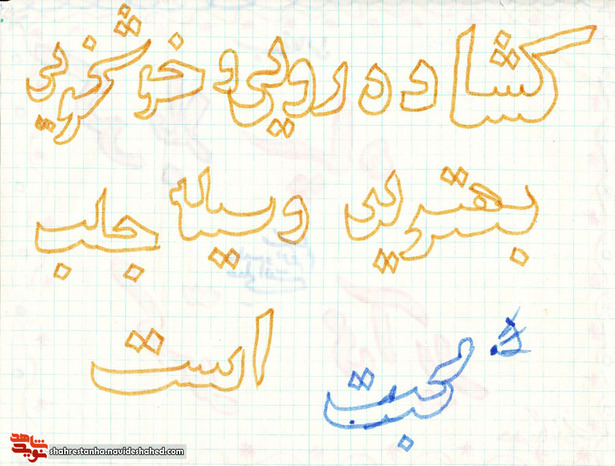 گشاده رویی و خوشخویی
بهترین وسیله جلب
محبت است
نوید شاهد
shahrestanha.navideshahed.com